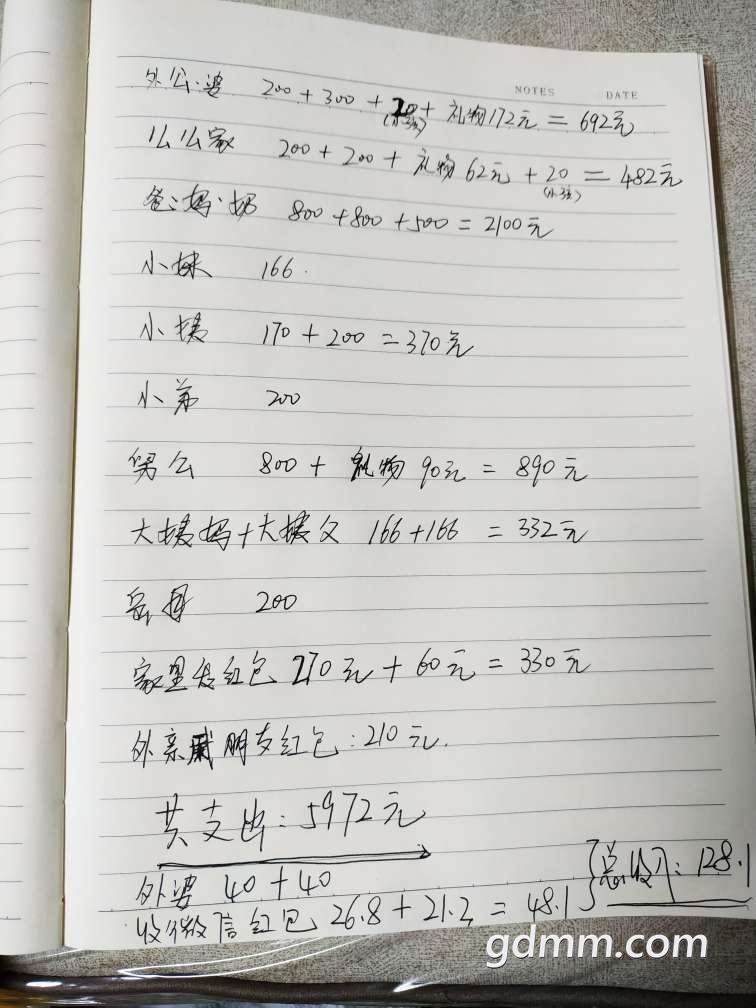 NOTES DATE
外公.婆 200+300+20+礼物172元=692元
(小孩)
么公家 200+200+礼物62元+20=482元
(小孩)
爸.妈.奶 800+800+500=2100元
小妹 166.
小姨 170+200=370元
小弟 200
舅公 800+礼物90元=890元
大姨妈+大姨父 166+166=332元
岳母 200
家里发红包 270元+60元=330元
外亲戚朋友红包:210元.
共支出:5972元
外婆 40+40
总收入:128.1
收微信红包 26.8+21.3=48.1
gdmm.com